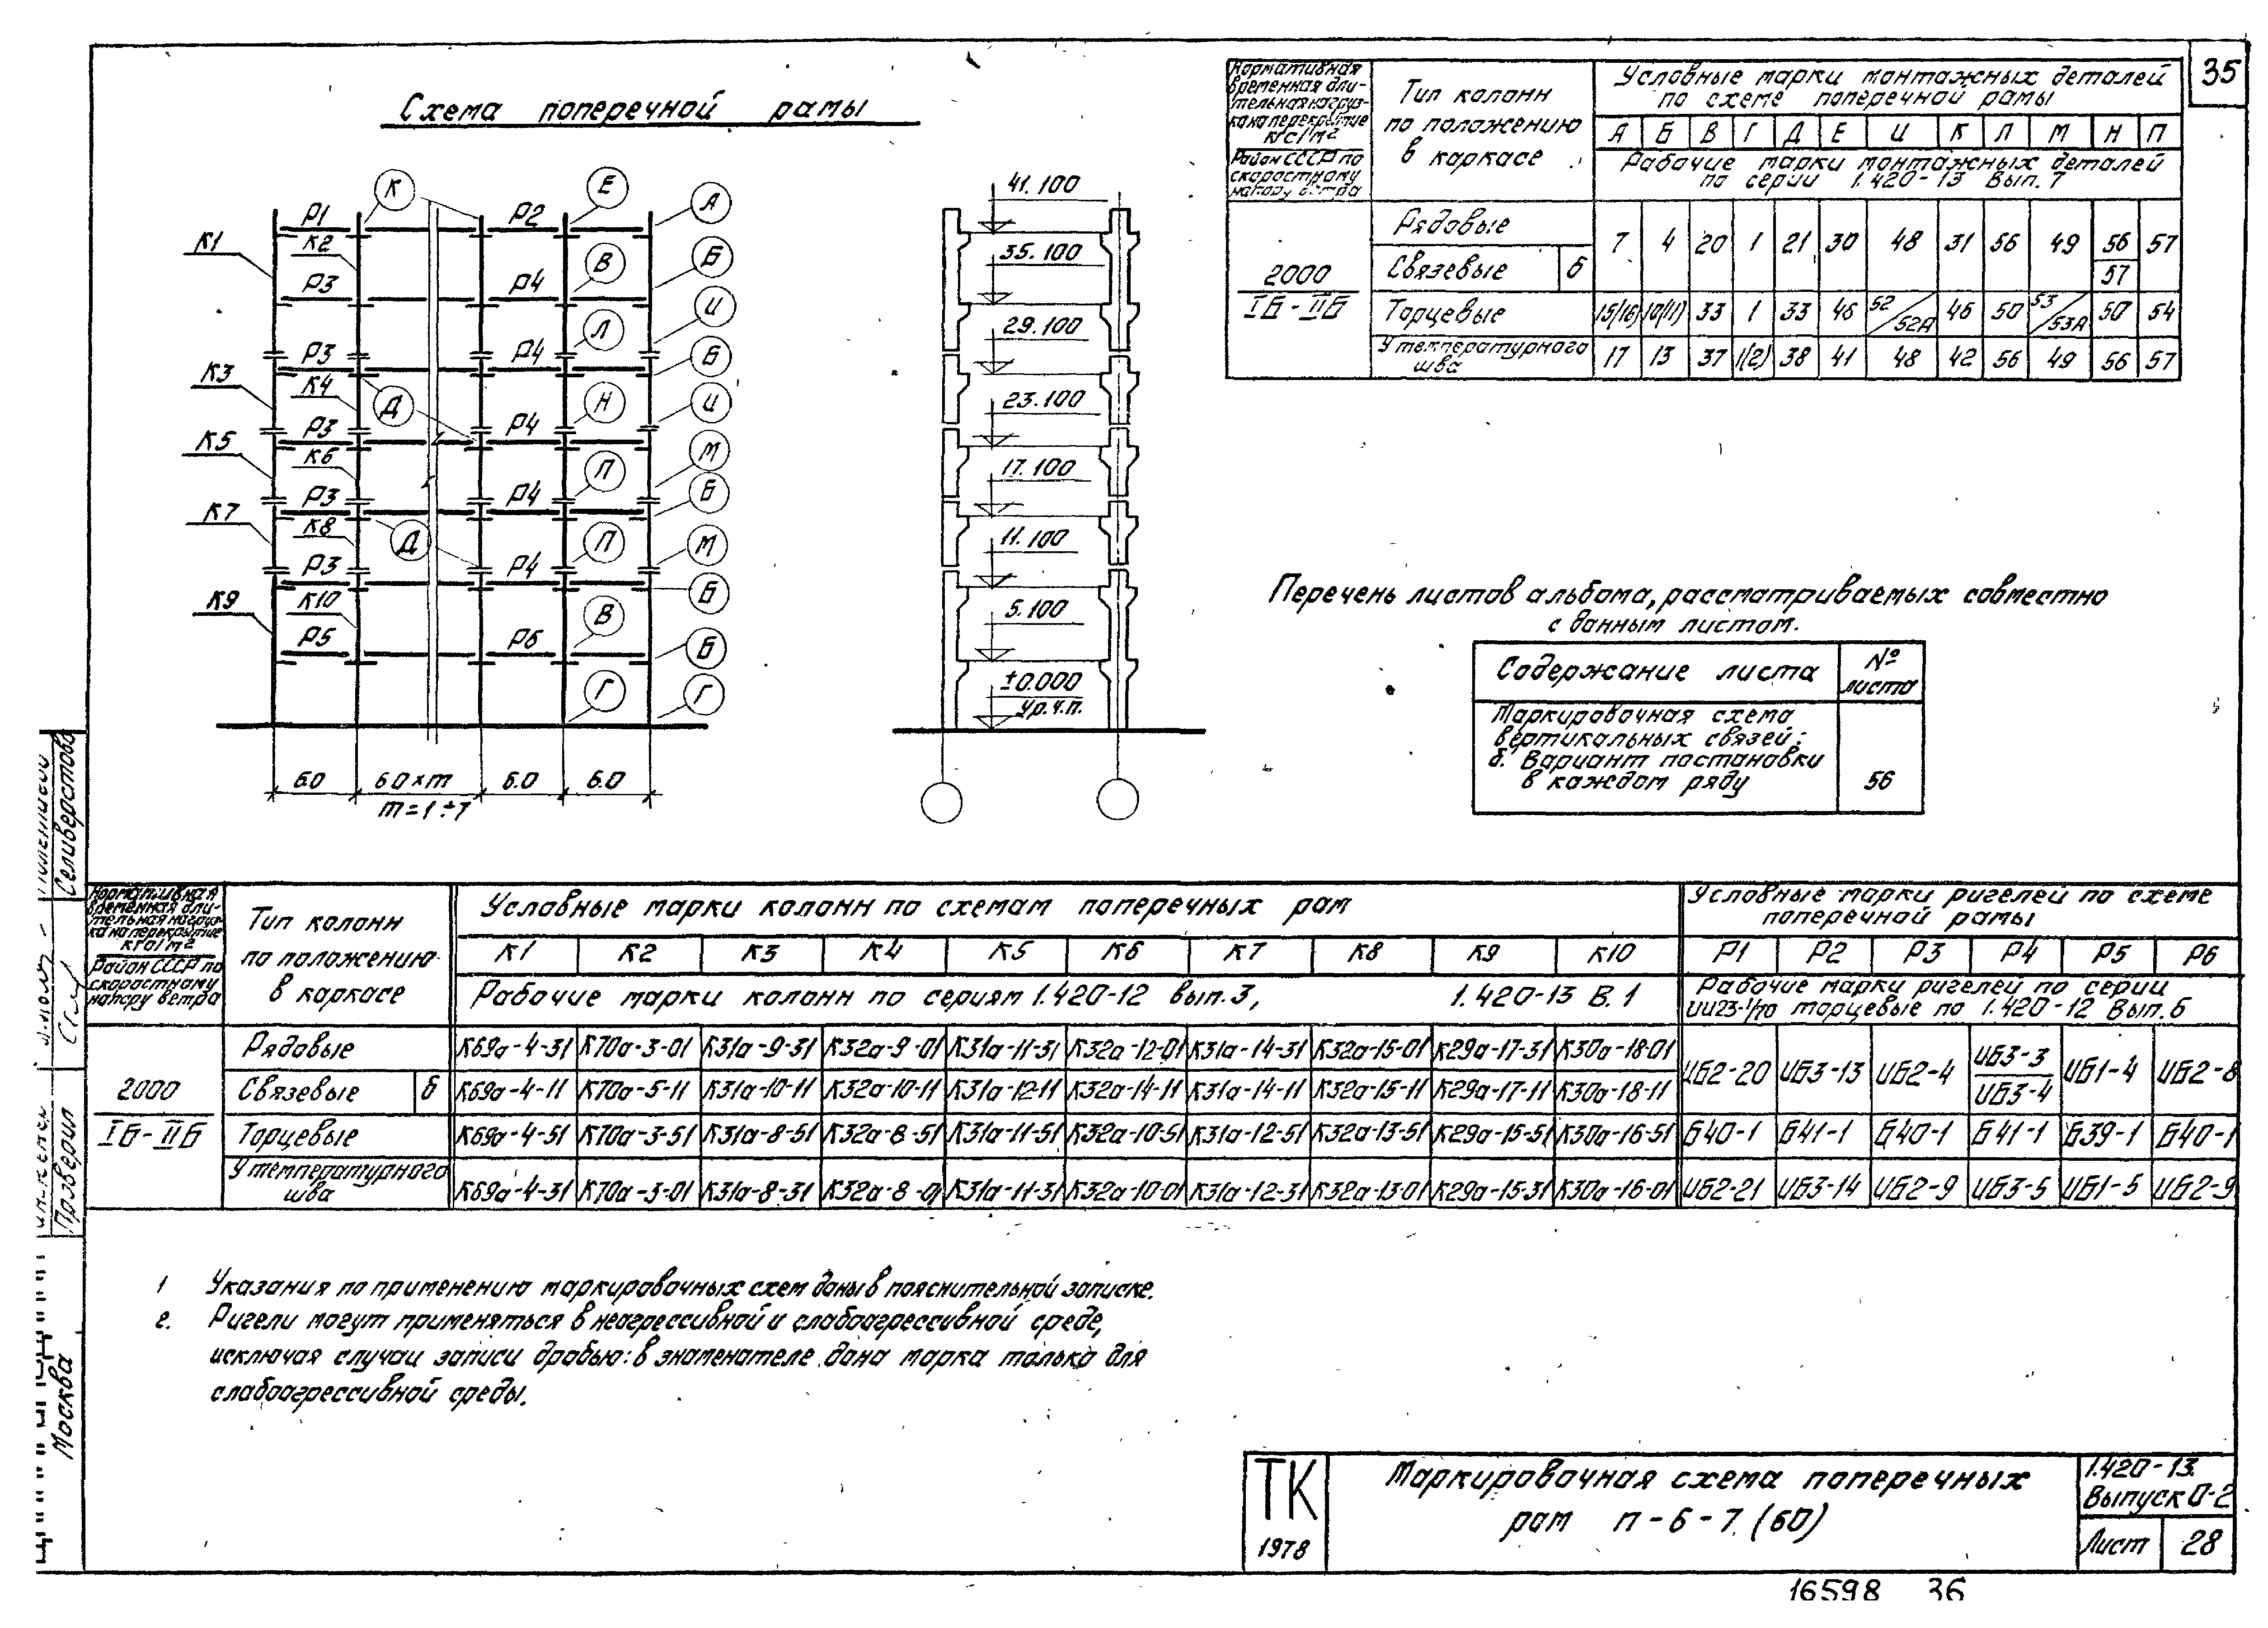 35
Схема поперечной рамы
К Е А
Р1 Р2
К1 К2
В Б
Р3 Р4
Л И
Р3 Р4
Б
К3 К4
Д Н И
Р3 Р4
К5 К6
П М
Р3 Р4
Б
К7 К8
Д П М
Р3 Р4
Б
К9 К10
В
Р5 Р6
Б
Г Г
6.0 6.0×m 6.0 6.0
m=1÷7
41.100
35.100
29.100
23.100
17.100
11.100
5.100
±0.000
ур.ч.п.
Нормативная временная длительная нагрузка на перекрытие кгс/м2
Район СССР по скоростному напору ветра
Тип колонн по положению в каркасе
Условные марки монтажных деталей
по схеме поперечной рамы
А Б В Г Д Е И К Л М Н П
Рабочие марки монтажных деталей
по серии 1.420-13 Вып.7
2000
IБ-IIБ
Рядовые
Связевые б
7 4 20 1 21 30 48 31 56 49 56/57 57
Торцевые 15/16) 10/11) 33 1 33 46 52/52А 46 50 53/53А 50 54
У температурного шва 17 13 37 1(2) 38 41 48 42 56 49 56 57
Перечень листов альбома, рассматриваемых совместно
с данным листом.
Содержание листа № листа
Маркировочная схема
вертикальных связей:
б. Вариант постановки
в каждом ряду 56
Нормативная временная длительная нагрузка на перекрытие кгс/м2
Район СССР по скоростному напору ветра
Тип колонн по положению в каркасе
Условные марки колонн по схемам поперечных рам
Условные марки ригелей по схеме
поперечной рамы
К1 К2 К3 К4 К5 К6 К7 К8 К9 К10 Р1 Р2 Р3 Р4 Р5 Р6
Рабочие марки колонн по сериям 1.420-12 вып.3, 1.420-13 В.1
Рабочие марки ригелей по серии
ИИ23-1/70 торцевые по 1.420-12 Вып.6
2000
IБ-IIБ
Рядовые К69а-4-31 К70а-3-01 К31а-9-31 К32а-9-01 К31а-11-31 К32а-12-01 К31а-14-31 К32а-15-01 К29а-17-31 К30а-18-01
Связевые б К69а-4-11 К70а-5-11 К31а-10-11 К32а-10-11 К31а-12-11 К32а-14-11 К31а-14-11 К32а-15-11 К29а-17-11 К30а-18-11
ИБ2-20 ИБ3-13 ИБ2-4 ИБ3-3/ИБ3-4 ИБ1-4 ИБ2-8
Торцевые К69а-4-51 К70а-3-51 К31а-8-51 К32а-8-51 К31а-11-51 К32а-10-51 К31а-12-51 К32а-13-51 К29а-15-51 К30а-16-51 Б40-1 Б41-1 Б40-1 Б41-1 Б39-1 Б40-1
У температурного шва К69а-4-31 К70а-3-01 К31а-8-31 К32а-8-01 К31а-11-31 К32а-10-01 К31а-12-31 К32а-13-01 К29а-15-31 К30а-16-01 ИБ2-21 ИБ3-14 ИБ2-9 ИБ3-5 ИБ1-5 ИБ2-9
1 Указания по применению маркировочных схем даны в пояснительной записке.
2. Ригели могут применяться в неагрессивной и слабоагрессивной среде,
исключая случаи записи дробью: в знаменателе дана марка только для
слабоагрессивной среды.
Селиверстова
Проверил
Москва
ТК
1978
Маркировочная схема поперечных
рам п-6-7 (60)
1.420-13.
Выпуск 0-2
Лист 28
16598 36